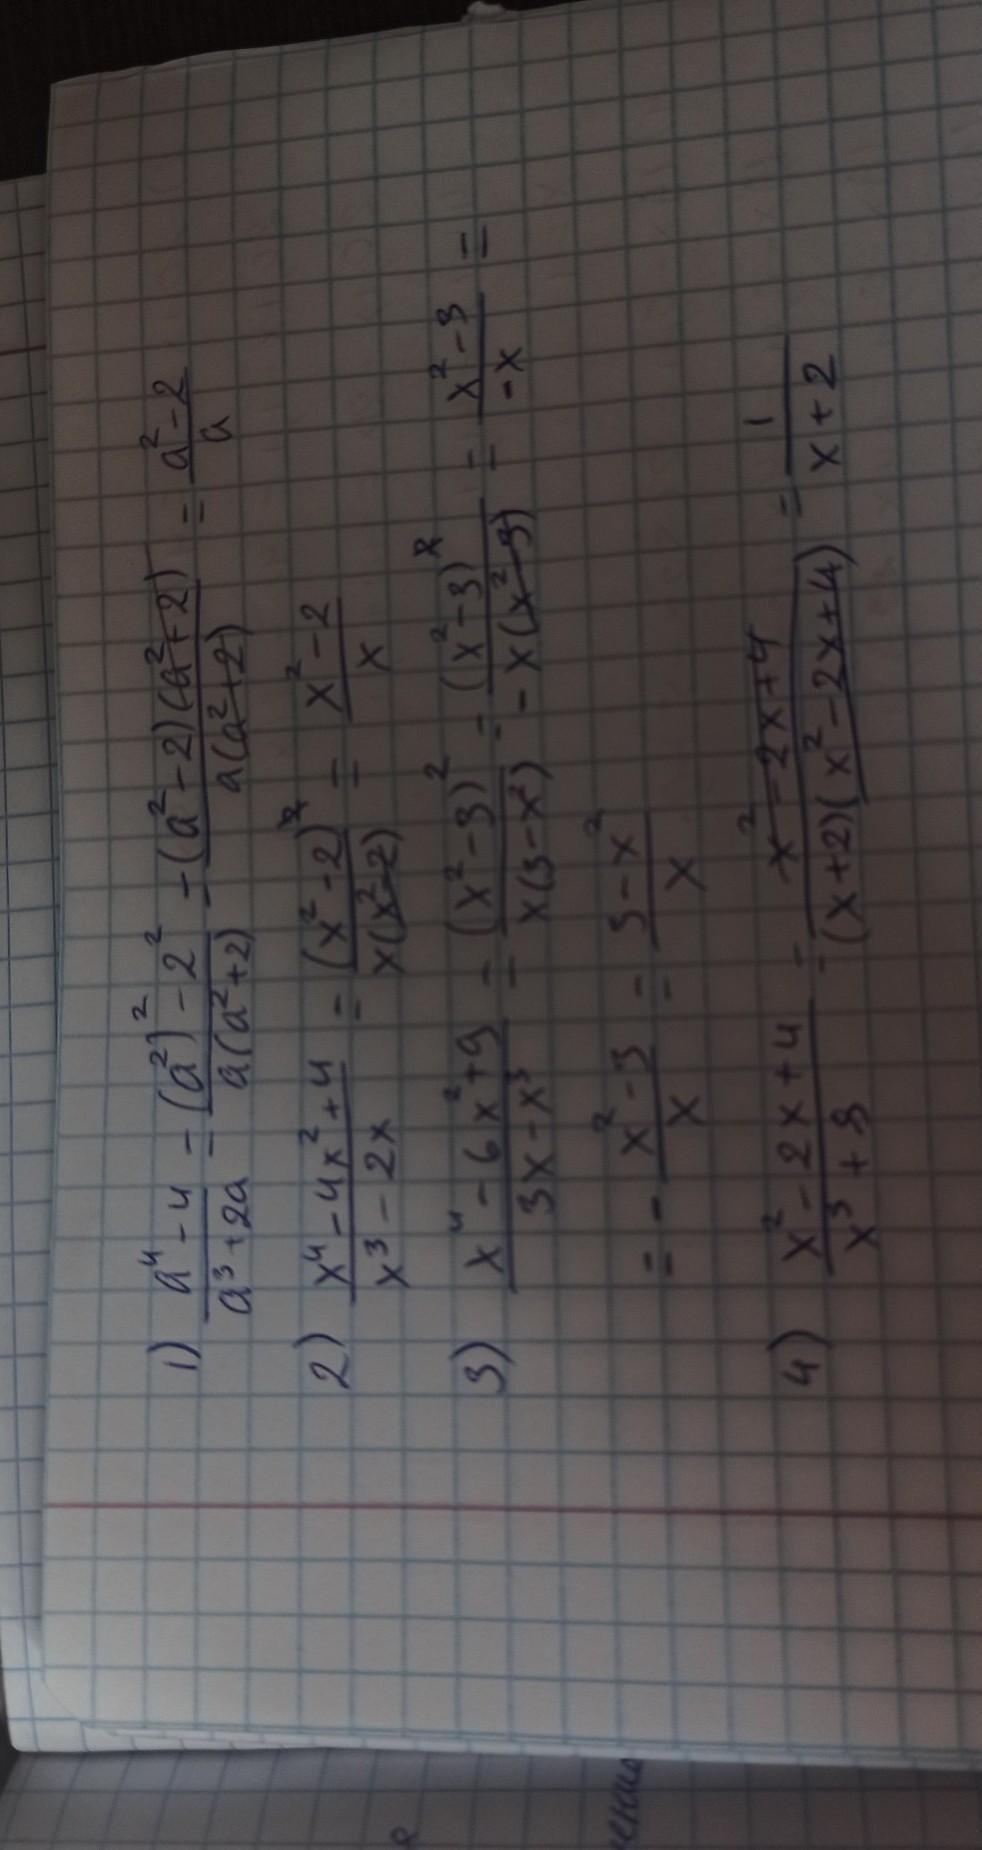 1) a⁴ - 4 / a³ + 2a = (a²)² - 2² / a(a² + 2) = (a² - 2)(a² + 2) / a(a² + 2) = a² - 2 / a
2) x⁴ - 4x² + 4 / x³ - 2x = (x² - 2)² / x(x² - 2) = x² - 2 / x
3) x⁴ - 6x² + 9 / 3x - x³ = (x² - 3)² / x(3 - x²) = (x² - 3)² / - x(x² - 3) = x² - 3 / - x =
= - x² - 3 / x = 3 - x² / x
4) x² - 2x + 4 / x³ + 8 = x² - 2x + 4 / (x + 2)(x² - 2x + 4) = 1 / x + 2